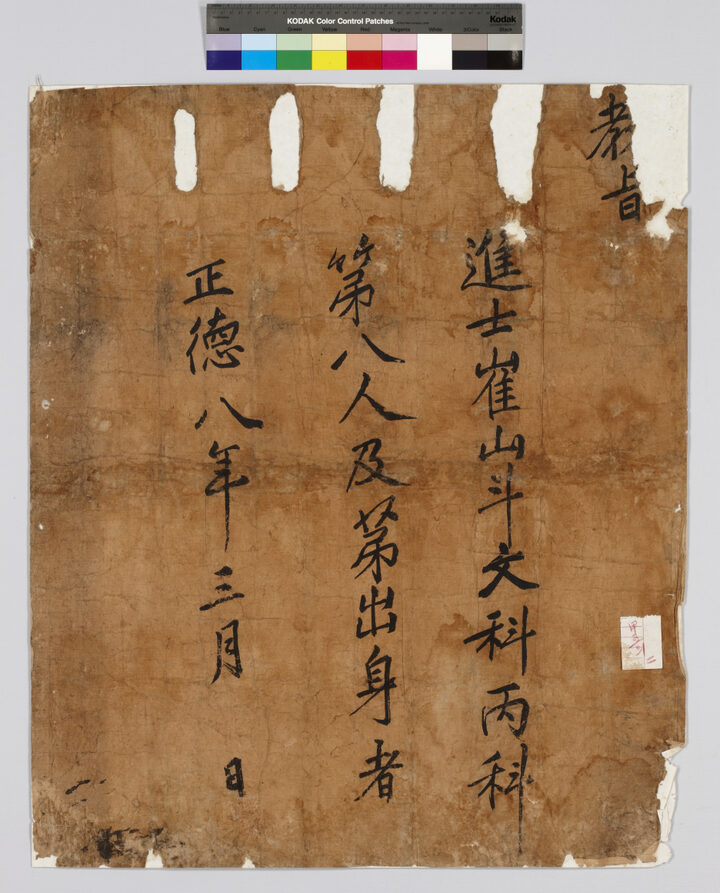 KODAK Color Control Patches
Kodak
Blue Cyan Green Yellow Red Magenta White 3/Color Black
敎旨
進士崔山斗文科丙科
第八人及第出身者
正德八年三月 日